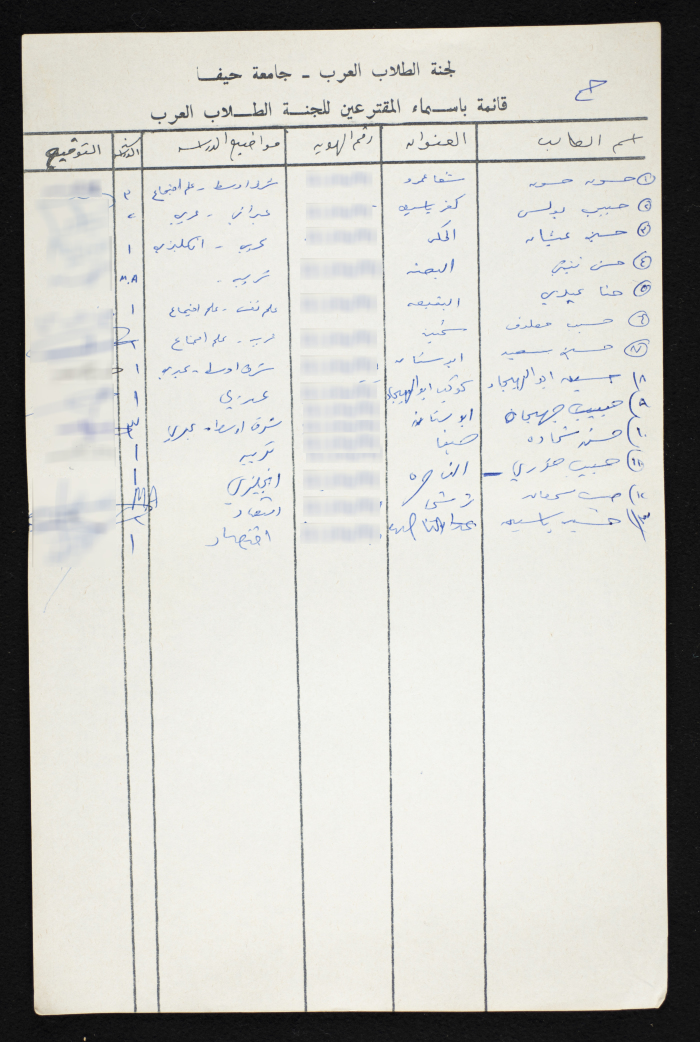 لجنة الطلاب العرب - جامعة حيفا
ح
قائمة باسماء المقترعين للجنة الطلاب العرب
اسم الطالب العنوان رقم الهوية مواضيع الدراسة التوقيع
١ حسون حسون شفاعمرو شرق اوسط - علم اجتماع ٣
٢ حبيب بولس كفر ياسيف عبراني - عربي
٣ حسين عربي - انكليزي ١
٤ حسن البعنه عربي - M.A
٥ حنا عيدي البقيعه علم نفس - علم اجتماع ١
٦ حسيب سخنين عرب - علم اجتماع
٧ حسين سعيد ابو سنان شرق اوسط - عبري ١
٨ ابو الهيجاء كوكب ابو الهيجاء عبري ١
٩ حبيب ابو سنان شرق اوسط عبري
١٠ حسن شحاده حيفا عربي ١
١١ حبيب خوري - الناصره انجليزي ١
١٢ ترشحا اقتصاد MA
١٣ ياسين اقتصاد ١